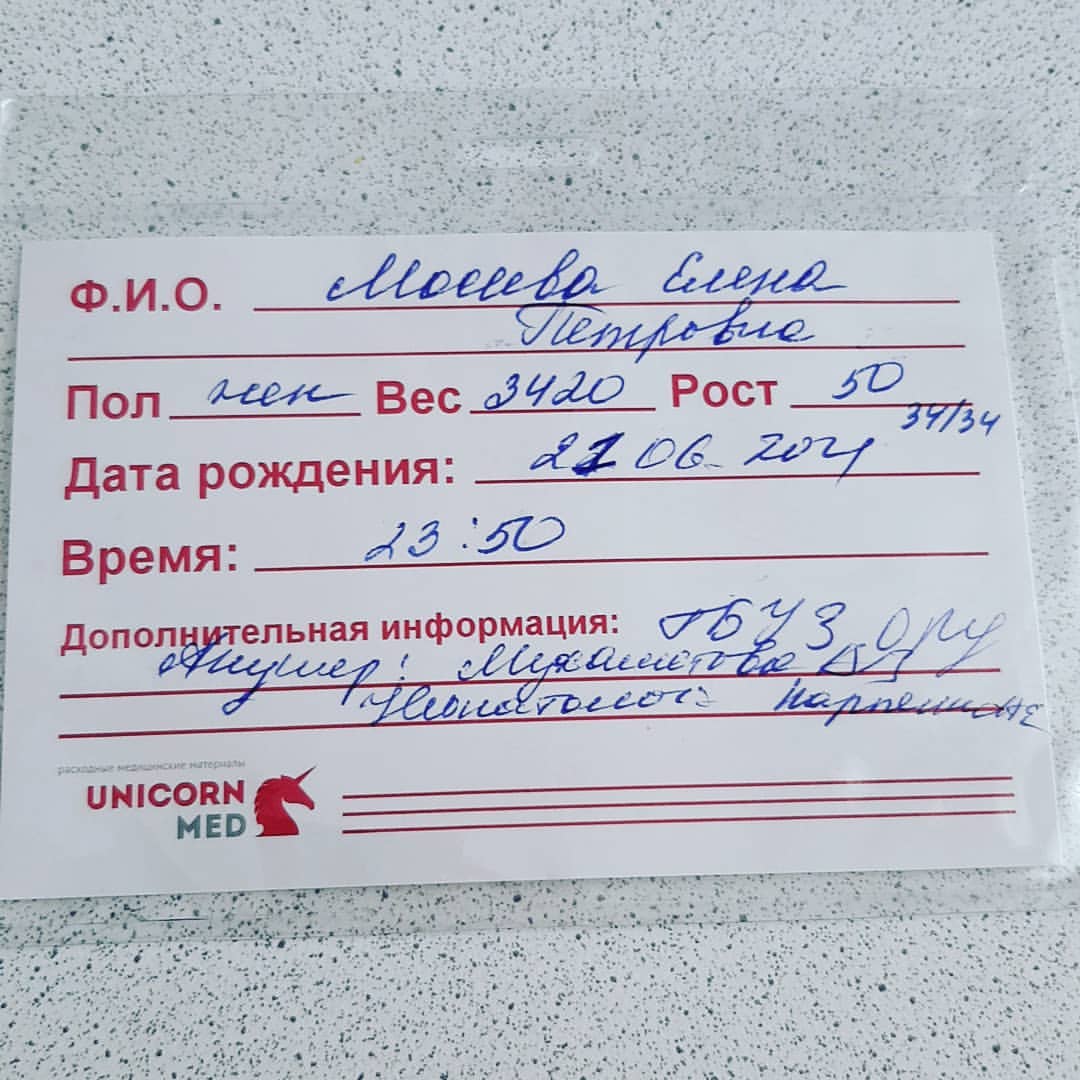 Ф.И.О. Мосиева Елена
Петровна
Пол жен Вес 3420 Рост 50
34/34
Дата рождения: 21 06. 2021
Время: 23:50
Дополнительная информация: ГБУЗ
Акушер: Мухаметова
Неонатолог:
расходные медицинские материалы
UNICORN
MED